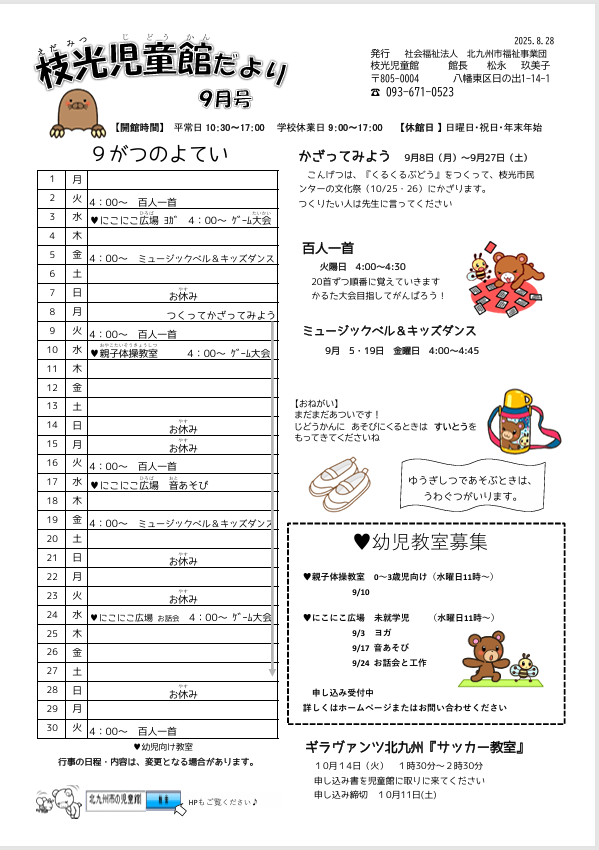 2025.8.28
枝光児童館だより
えだみつ じどうかん
9月号
発行 社会福祉法人 北九州市福祉事業団
枝光児童館 館長 松永 玖美子
〒805-0004 八幡東区日の出1-14-1
☎ 093-671-0523
【開館時間】 平常日 10:30～17:00 学校休業日 9:00～17:00 【休館日】日曜日・祝日・年末年始
９がつのよてい
1 月
2 火 4：00～ 百人一首
3 水 ♥にこにこ広場 ﾖｶﾞ 4：00～ ｹﾞｰﾑ大会
4 木
5 金 4：00～ ミュージックベル＆キッズダンス
6 土
7 日 お休み
8 月 つくってかざってみよう
9 火 4：00～ 百人一首
10 水 ♥親子体操教室 4：00～ ｹﾞｰﾑ大会
11 木
12 金
13 土
14 日 お休み
15 月 お休み
16 火 4：00～ 百人一首
17 水 ♥にこにこ広場 音あそび
18 木
19 金 4：00～ ミュージックベル＆キッズダンス
20 土
21 日 お休み
22 月
23 火 お休み
24 水 ♥にこにこ広場 お話会 4：00～ ｹﾞｰﾑ大会
25 木
26 金
27 土
28 日 お休み
29 月
30 火 4：00～ 百人一首
♥幼児向け教室
行事の日程・内容は、変更となる場合があります。
北九州市の児童館
HPもご覧ください♪
かざってみよう 9月8日（月）～9月27日（土）
こんげつは、『くるくるぶどう』をつくって、枝光市民
ンターの文化祭（10/25・26）にかざります。
つくりたい人は先生に言ってください
百人一首
火陽日 4:00～4:30
20首ずつ順番に覚えていきます
かるた大会目指してがんばろう！
ミュージックベル＆キッズダンス
9月 5・19日 金曜日 4:00～4:45
【おねがい】
まだまだあついです！
じどうかんに あそびにくるときは すいとうを
もってきてくださいね
ゆうぎしつであそぶときは、
うわぐつがいります。
♥幼児教室募集
♥親子体操教室 0～3歳児向け（水曜日11時～）
9/10
♥にこにこ広場 未就学児 （水曜日11時～）
9/3 ヨガ
9/17 音あそび
9/24 お話会と工作
申し込み受付中
詳しくはホームページまたはお問い合わせください
ギラヴァンツ北九州『サッカー教室』
１０月１４日（火） １時30分～２時30分
申し込み書を児童館に取りに来てください
申し込み締切 １０月11日(土)